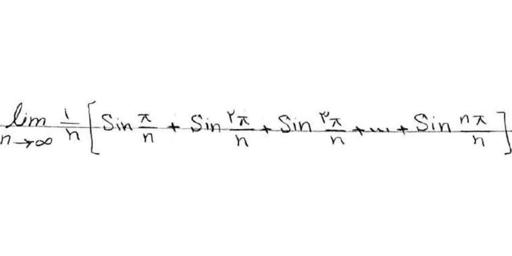 lim n→∞ 1/n [ Sin π/n + Sin ۲π/n + Sin ۳π/n + ... + Sin nπ/n ]